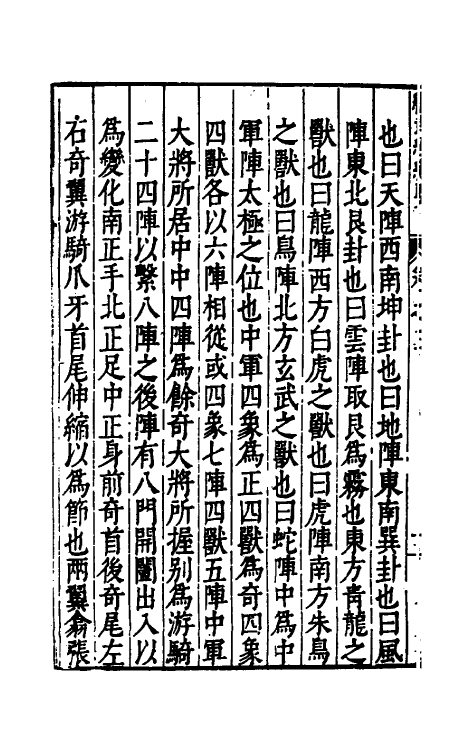 也曰天陣西南坤卦也曰地陣東南巽卦也曰風
陣東北艮卦也曰雲陣取艮為霧也東方青龍之
獸也曰龍陣西方白虎之獸也曰虎陣南方朱鳥
之獸也曰鳥陣北方玄武之獸也曰蛇陣中為中
軍陣太極之位也中軍四象為正四獸為奇四象
四獸各以六陣相從或四象七陣四獸五陣中軍
大將所居中中四陣為餘奇大將所握别為游騎
二十四陣以繫八陣之後陣有八門開闔出入以
為變化南正手北正足中正身前奇首後奇尾左
右奇翼游騎爪牙首尾伸縮以為節也兩翼翕張